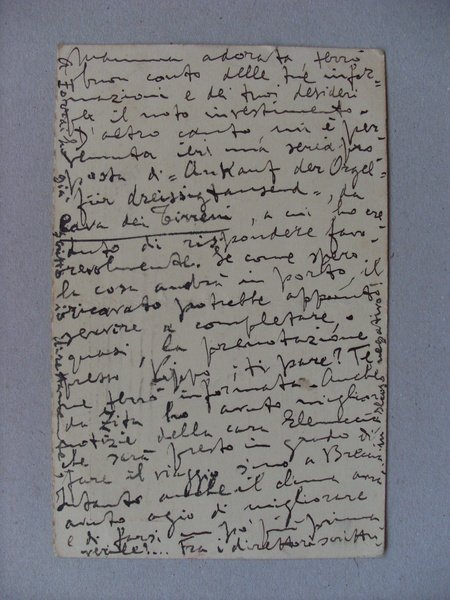 Mamma adorata, terrò
buon conto delle tue infor-
mazioni e dei tuoi desideri
per il noto investimento.
D'altro canto, mi è per-
venuta ieri una seria pro-
posta di "Ankauf der Orgel
für dreissigtausend", da
Cava dei Tirreni, a cui ho cre
duto di rispondere favo-
revolmente. Se come spero
la cosa andrà in porto, il
ricavato potrebbe appunto
servire a completare, o
quasi, la prenotazione
presso Pippo; ti pare? Te
ne terrò informata. Anche
da Zita ho avuto migliori
notizie della cara Elenuccia
che sarà presto in grado di
fare il viaggio sino a
Intanto anche il clima avrà
avuto agio di migliorare
e di farsi un po' più prima
verile!... Fra i direttori scritti